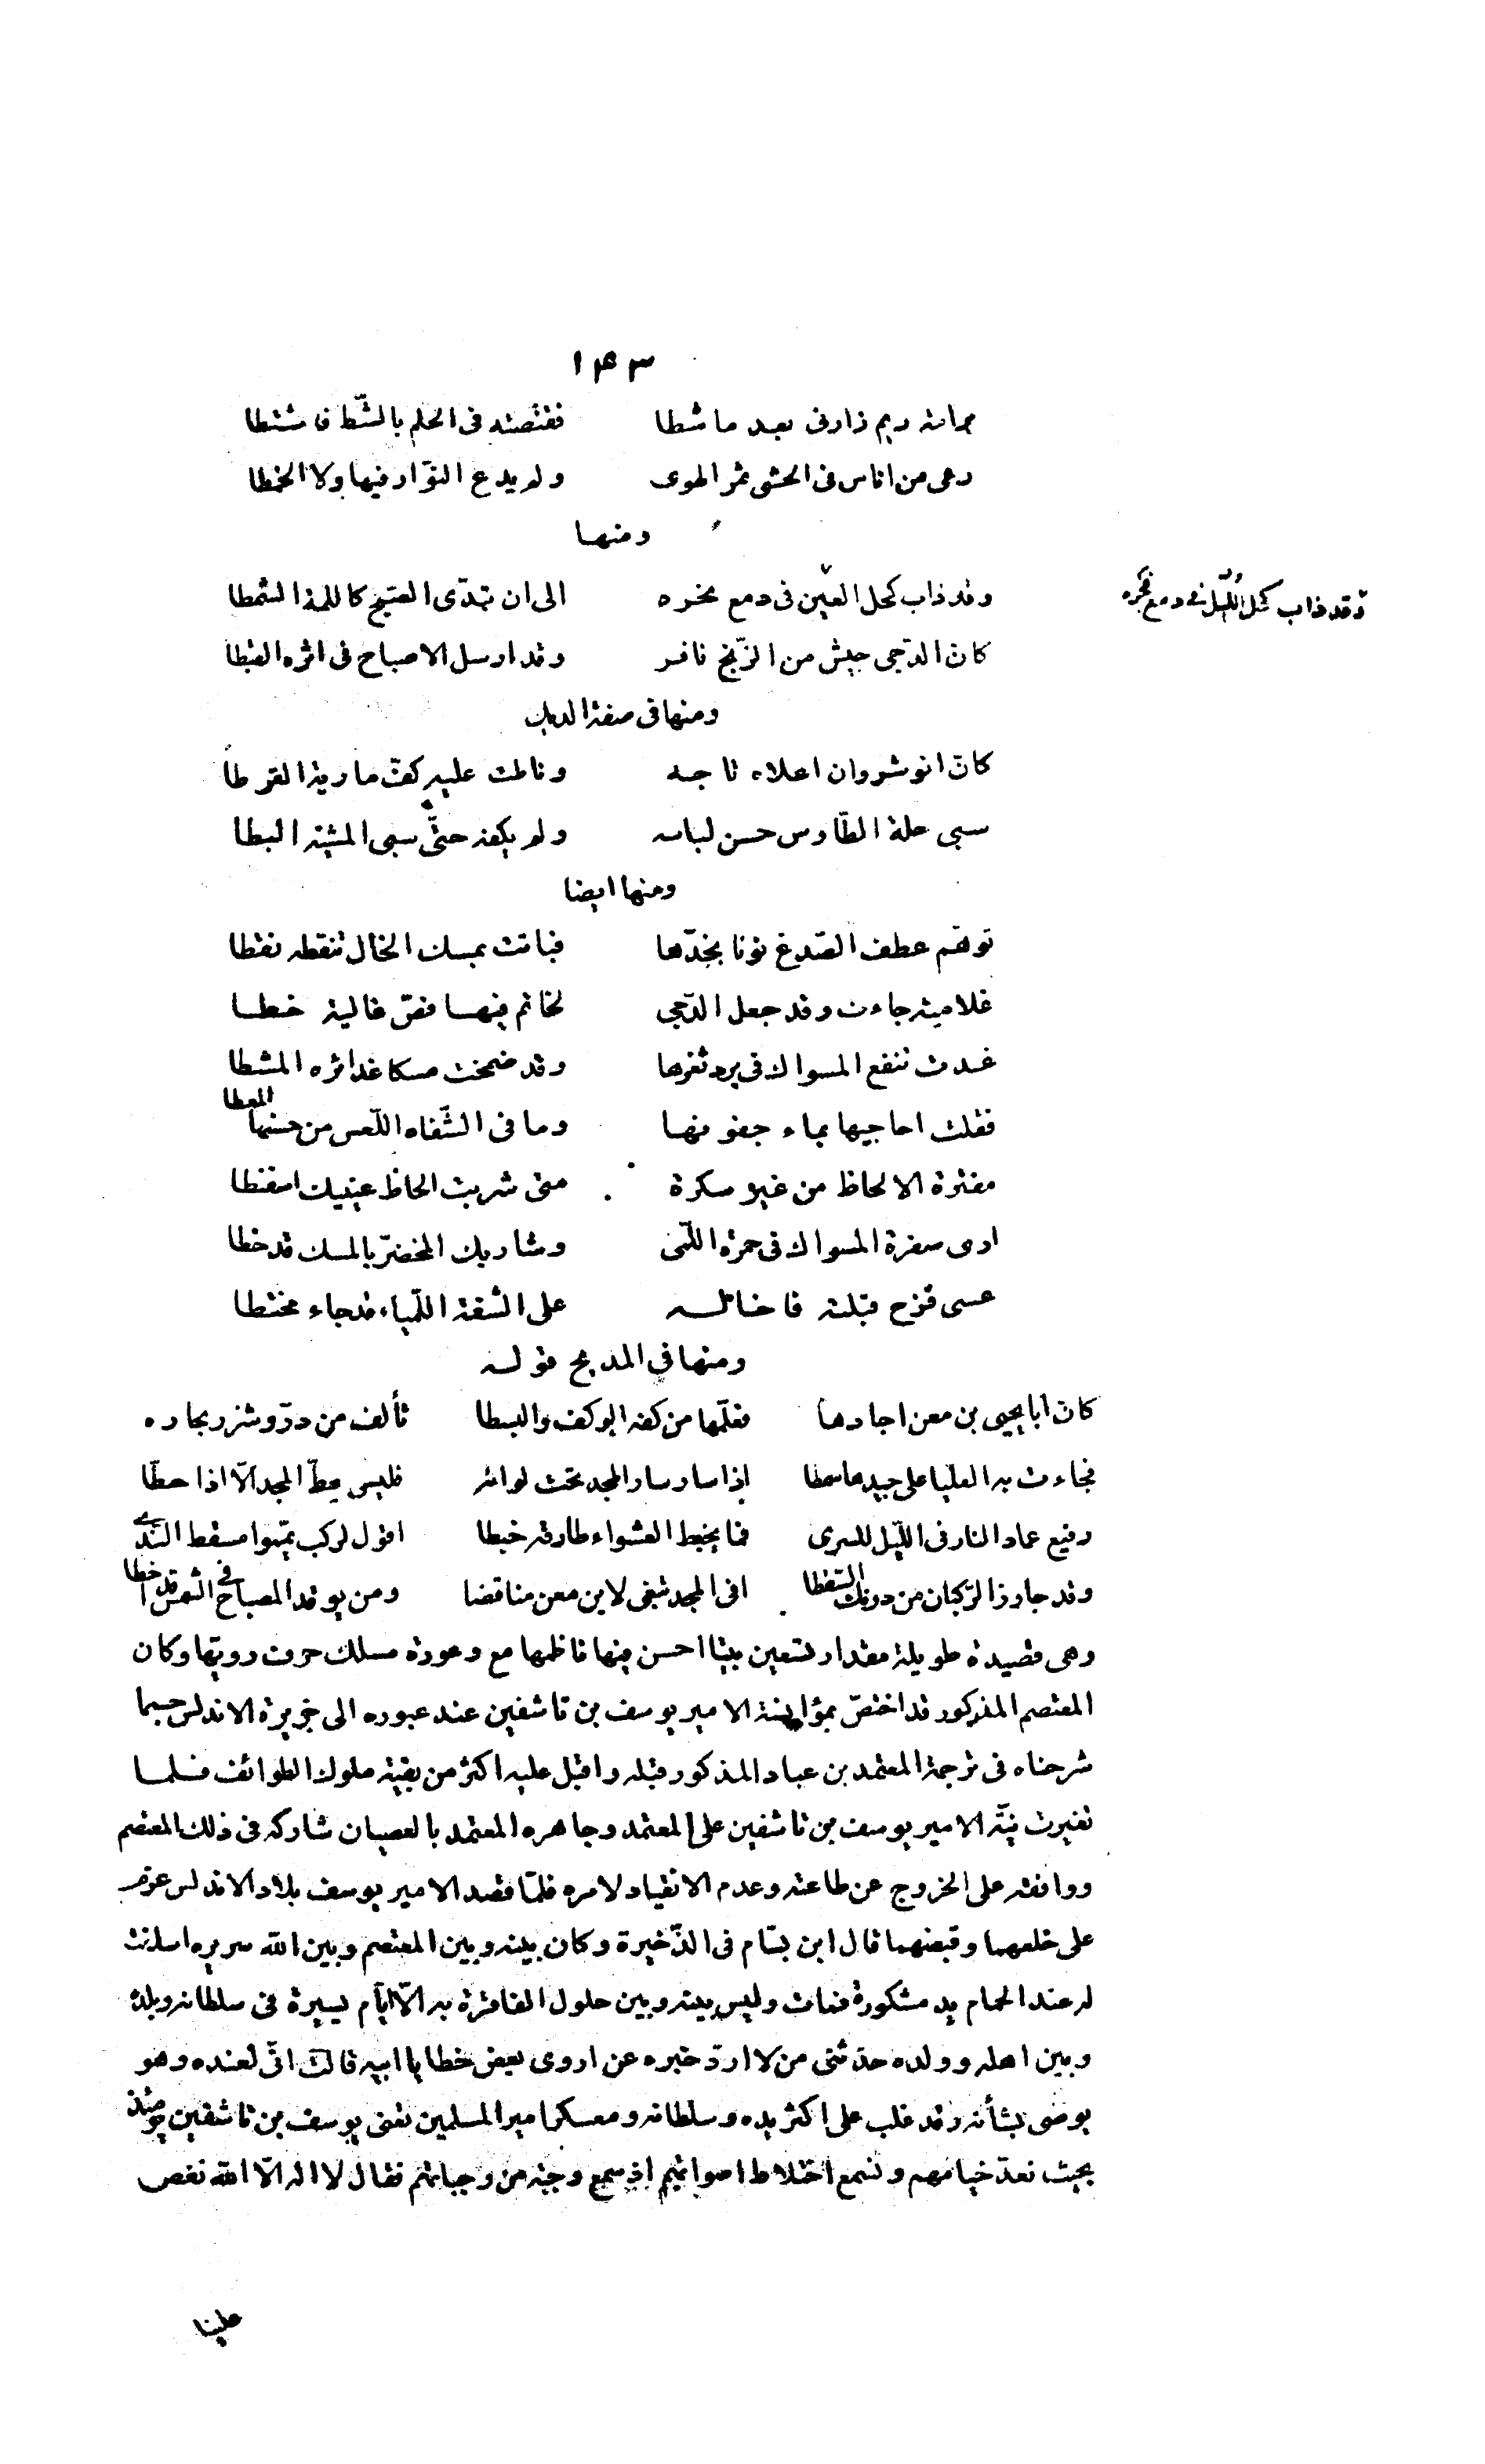 ١٤٣
برامة ريم زارنى بعد ما شطا    فقنصته فى الحلم بالشّط فاشتطا
رعى من اناس فى الحشى ثمر الهوى    ولم يدع النوّار فيها ولا الخمطا
ومنها
وقد ذاب كحل العين فى دمع نحره    الى ان تبدّى الصبح كاللمة الشمطا
وقد ذاب كحل اللّيل فى دمع فجره
كان الدّجى جيش من الزّنج نافر    وقد ارسل الاصباح فى اثره القبطا
ومنها فى صفة الديك
كان انوشروان اعلاه تاجه    وناطت عليه كف مارية القرطا
سبى حلة الطّاوس حسن لباسه    ولم يكفه حتّى سبى المشية البطا
ومنها ايضا
توهّم عطف الصّدغ نونا بخدّها    فباتت بمسك الخال تنقطه نقطا
غلامية جاءت وقد جعل الدّجى    لخاتم فيها فصّ غالية خطا
غدت تنقع المسواك فى برد ثغرها    وقد ضمخت مسكا غدائره المشطا
فقلت احاجيها بماء جفونها    وما فى الشّفاه اللّعس من حسنها المعطا
مفترة الالحاظ من غير سكرة    متى شربت الحاظ عينيك اسفنطا
ارى صفرة المسواك فى حمرة اللّمى    وشاربك المخضرّ بالمسك قد خطا
عسى قزح قبلته فاخاله    على الشفة اللّمياء قد جاء مختطا
ومنها فى المديح قوله
كان ابا يحيى بن معن اجادها    فعلّمها من كفه الوكف والبسطا    تألف من درّ وشذر نجاره
فجاءت به العليا على جيدها سمطا    إذا سار سار المجد تحت لوائه    فليس يحطّ المجد الّا اذا حطّا
رفيع عماد النار فى اللّيل للسرى    فما يخبط العشواء طارقه خبطا    اقول لركب يمّموا مسقط النّدى
وقد جاوز الرّكبان من دونك السّقطا    افى المجد تبغى لابن معن مناقضا    ومن يوقد المصباح فى الشمس قد اخطا
وهى قصيدة طويلة مقدار تسعين بيتا احسن فيها ناظمها مع وعورة مسلك حرف رويها وكان
المعتصم المذكور قد اختصّ بمؤانسة الامير يوسف بن تاشفين عند عبوره الى جزيرة الاندلس حسبما
شرحناه فى ترجمة المعتمد بن عباد المذكور قبله واقبل عليه اكثر من بقية ملوك الطوائف فلما
تغيرت نيّة الامير يوسف بن تاشفين على المعتمد وجاهره المعتمد بالعصيان شاركه فى ذلك المعتصم
ووافقه على الخروج عن طاعته وعدم الانقياد لامره فلمّا قصد الامير يوسف بلاد الاندلس عزم
على خلعهما وقبضهما قال ابن بسّام فى الذّخيرة وكان بينه وبين المعتصم وبين الله سريره اسلفت
له عند الحمام يد مشكورة فمات وليس بينه وبين حلول الفاقرة به الّا ايّام يسيرة فى سلطانه وبلده
وبين اهله وولده حدثنى من لا اردّ خبره عن اروى بعض خطايا ابيه قالت انّى لعنده وهو
يوصى بشأنه وقد غلب على اكثر يده وسلطانه ومعسكر امير المسلمين تعنى يوسف بن تاشفين يومئذ
بحيث نعدّ خيامهم ونسمع اختلاط اصواتهم اذ سمع وجبة من وجباتهم فقال لا اله الّا الله نغص
علينا